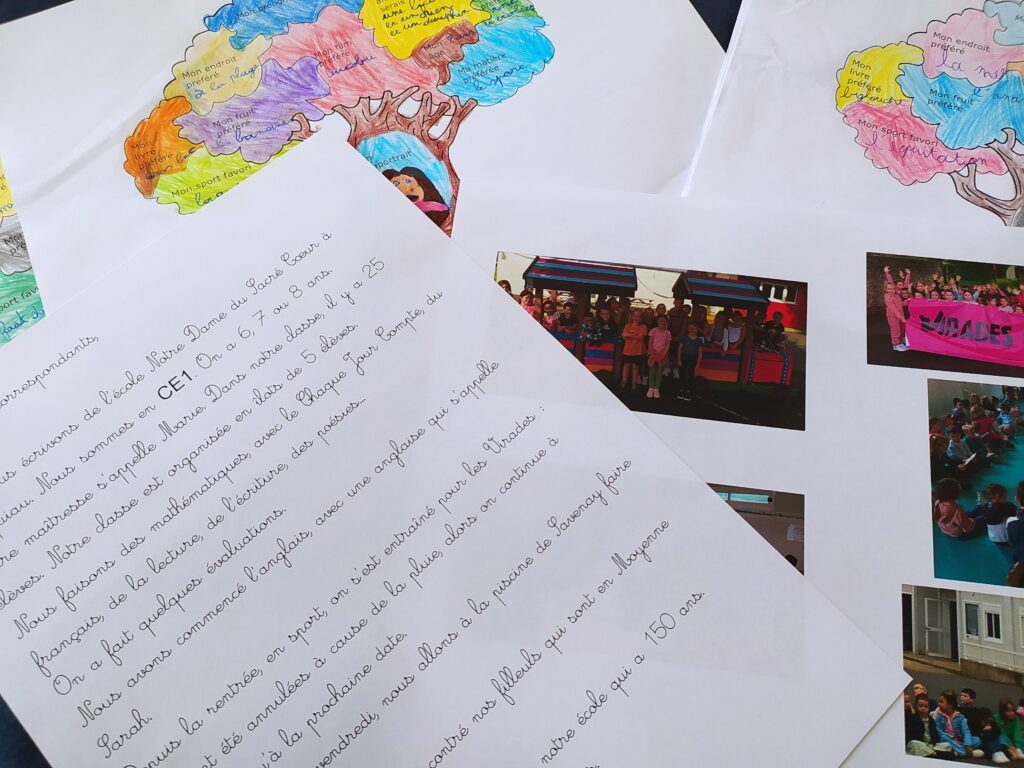 serais
une lic
et un chien
et un dauphin
Mon endroit
préféré
à la plage
Mon fruit
préféré
Ma matière
préférée
le sport
Mon fruit
préféré
la banane
Mon
livre
préféré
Mon sport favori
portrait
Mon
sport favori
Mon endroit
préféré
la mer
Mon
livre
préféré
Mon fruit
préféré
Mon sport préféré
l'équitation
VIRADES
orrespondants,
us écrivons de l'école Notre Dame du Sacré Coeur à
quiau. Nous sommes en CE1. On a 6, 7 ou 8 ans.
re maîtresse s'appelle Marie. Dans notre classe, il y a 25
élèves. Notre classe est organisée en îlots de 5 élèves.
Nous faisons des mathématiques, avec le Chaque Jour Compte, du
français, de la lecture, de l'écriture, des poésies...
On a fait quelques évaluations.
Nous avons commencé l'anglais, avec une anglaise qui s'appelle
Sarah.
Depuis la rentrée, en sport, on s'est entraîné pour les Virades :
t été annulées à cause de la pluie, alors on continue à
'à la prochaine date.
vendredi, nous allons à la piscine de Savenay faire
contré nos filleuls qui sont en Moyenne
notre école qui a 150 ans.